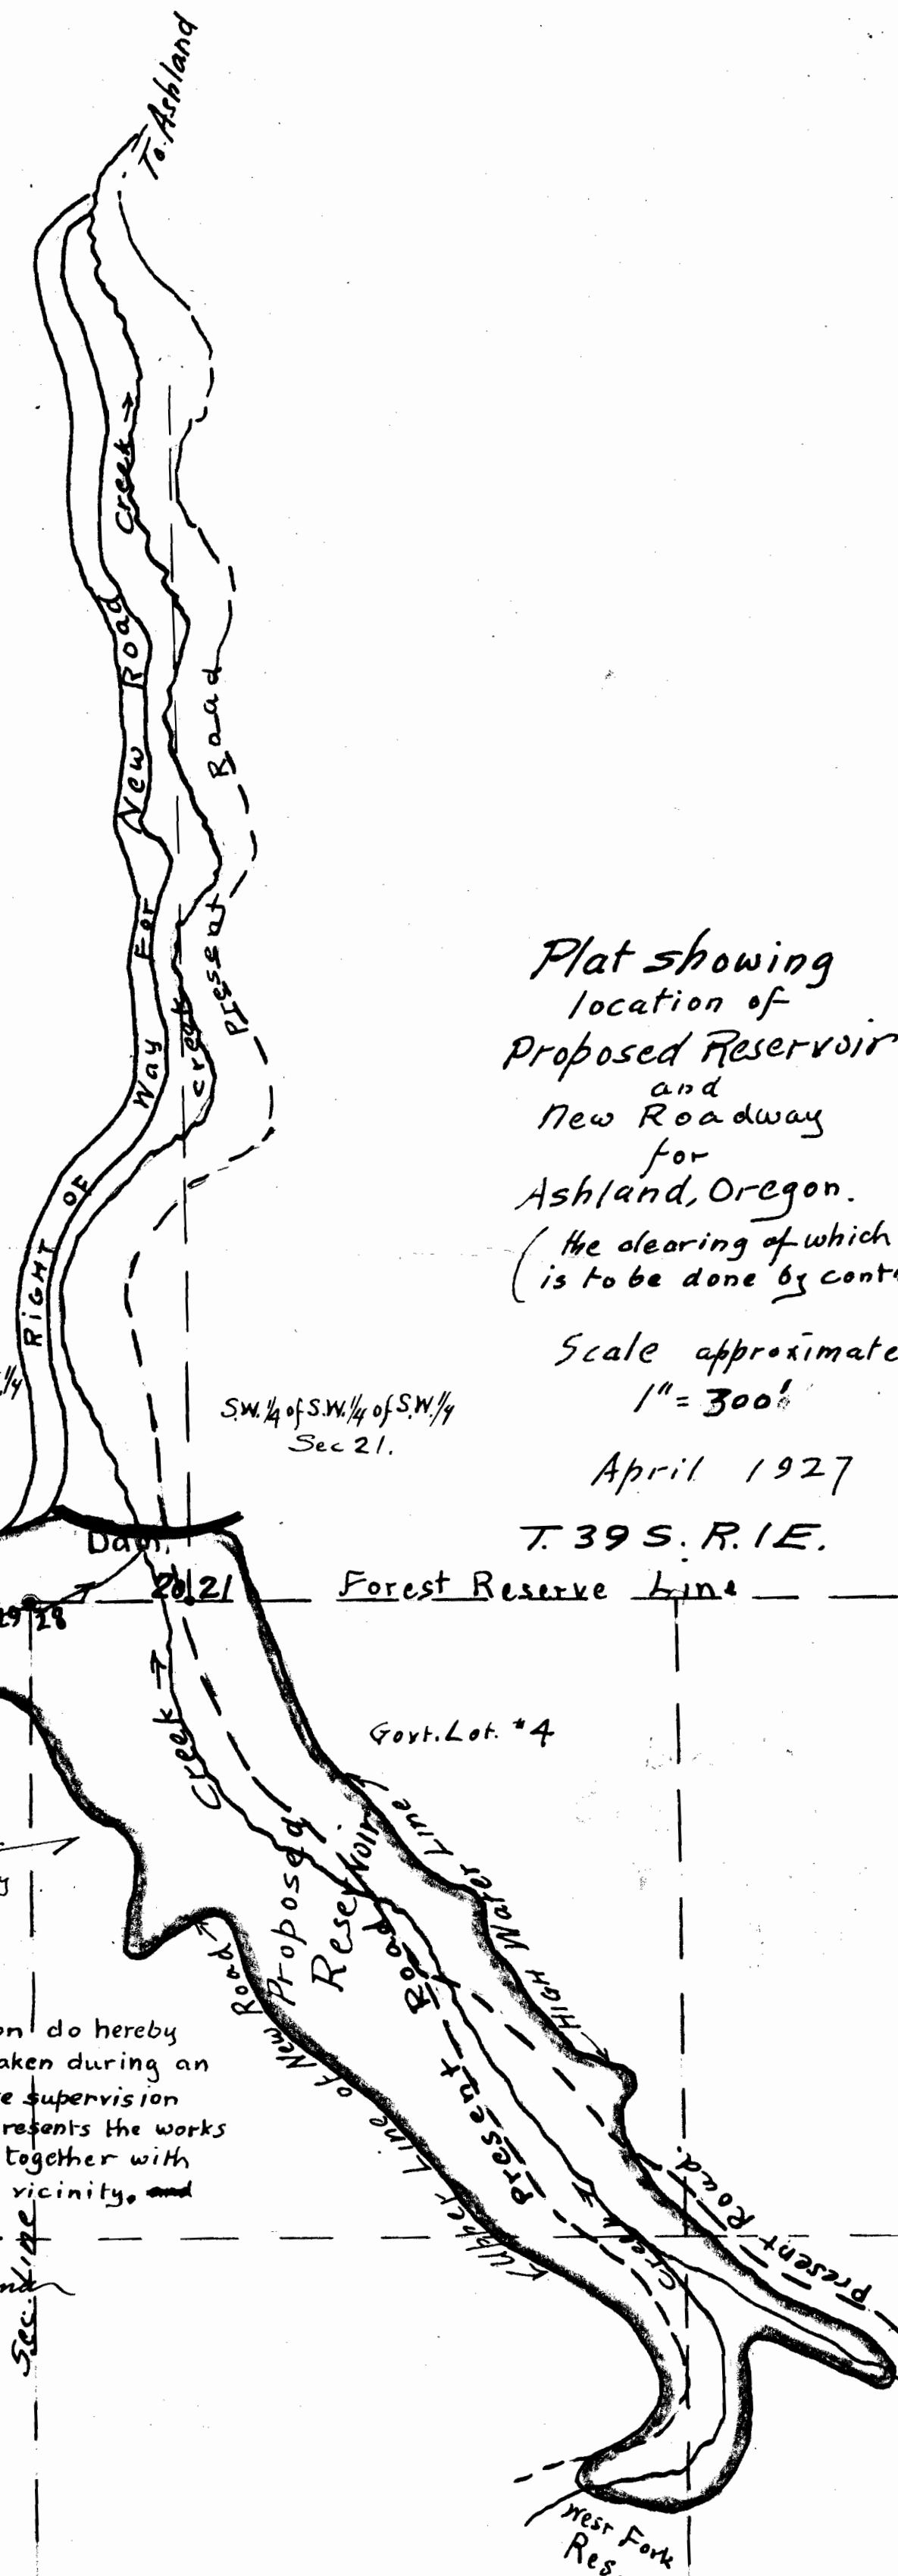 To Ashland
Creek
RIGHT OF Way For New Road
Present Road
creek
Plat showing
location of
Proposed Reservoir
and
New Roadway
for
Ashland, Oregon.
(the clearing of which
is to be done by cont
Scale approximate
1" = 300'
April 1927
T. 39 S. R. 1 E.
1/4
S.W. 1/4 of S.W. 1/4 of S.W. 1/4
Sec 21.
Dam.
20 21
Forest Reserve Line
29 28
Creek
Govt. Lot. #4
Proposed
Reservoir
High Water Line
Upper Line of New Road
Present Road
Creek
Present Road.
on do hereby
aken during an
e supervision
resents the works
together with
vicinity. and
Sec. Line
West Fork
Res.